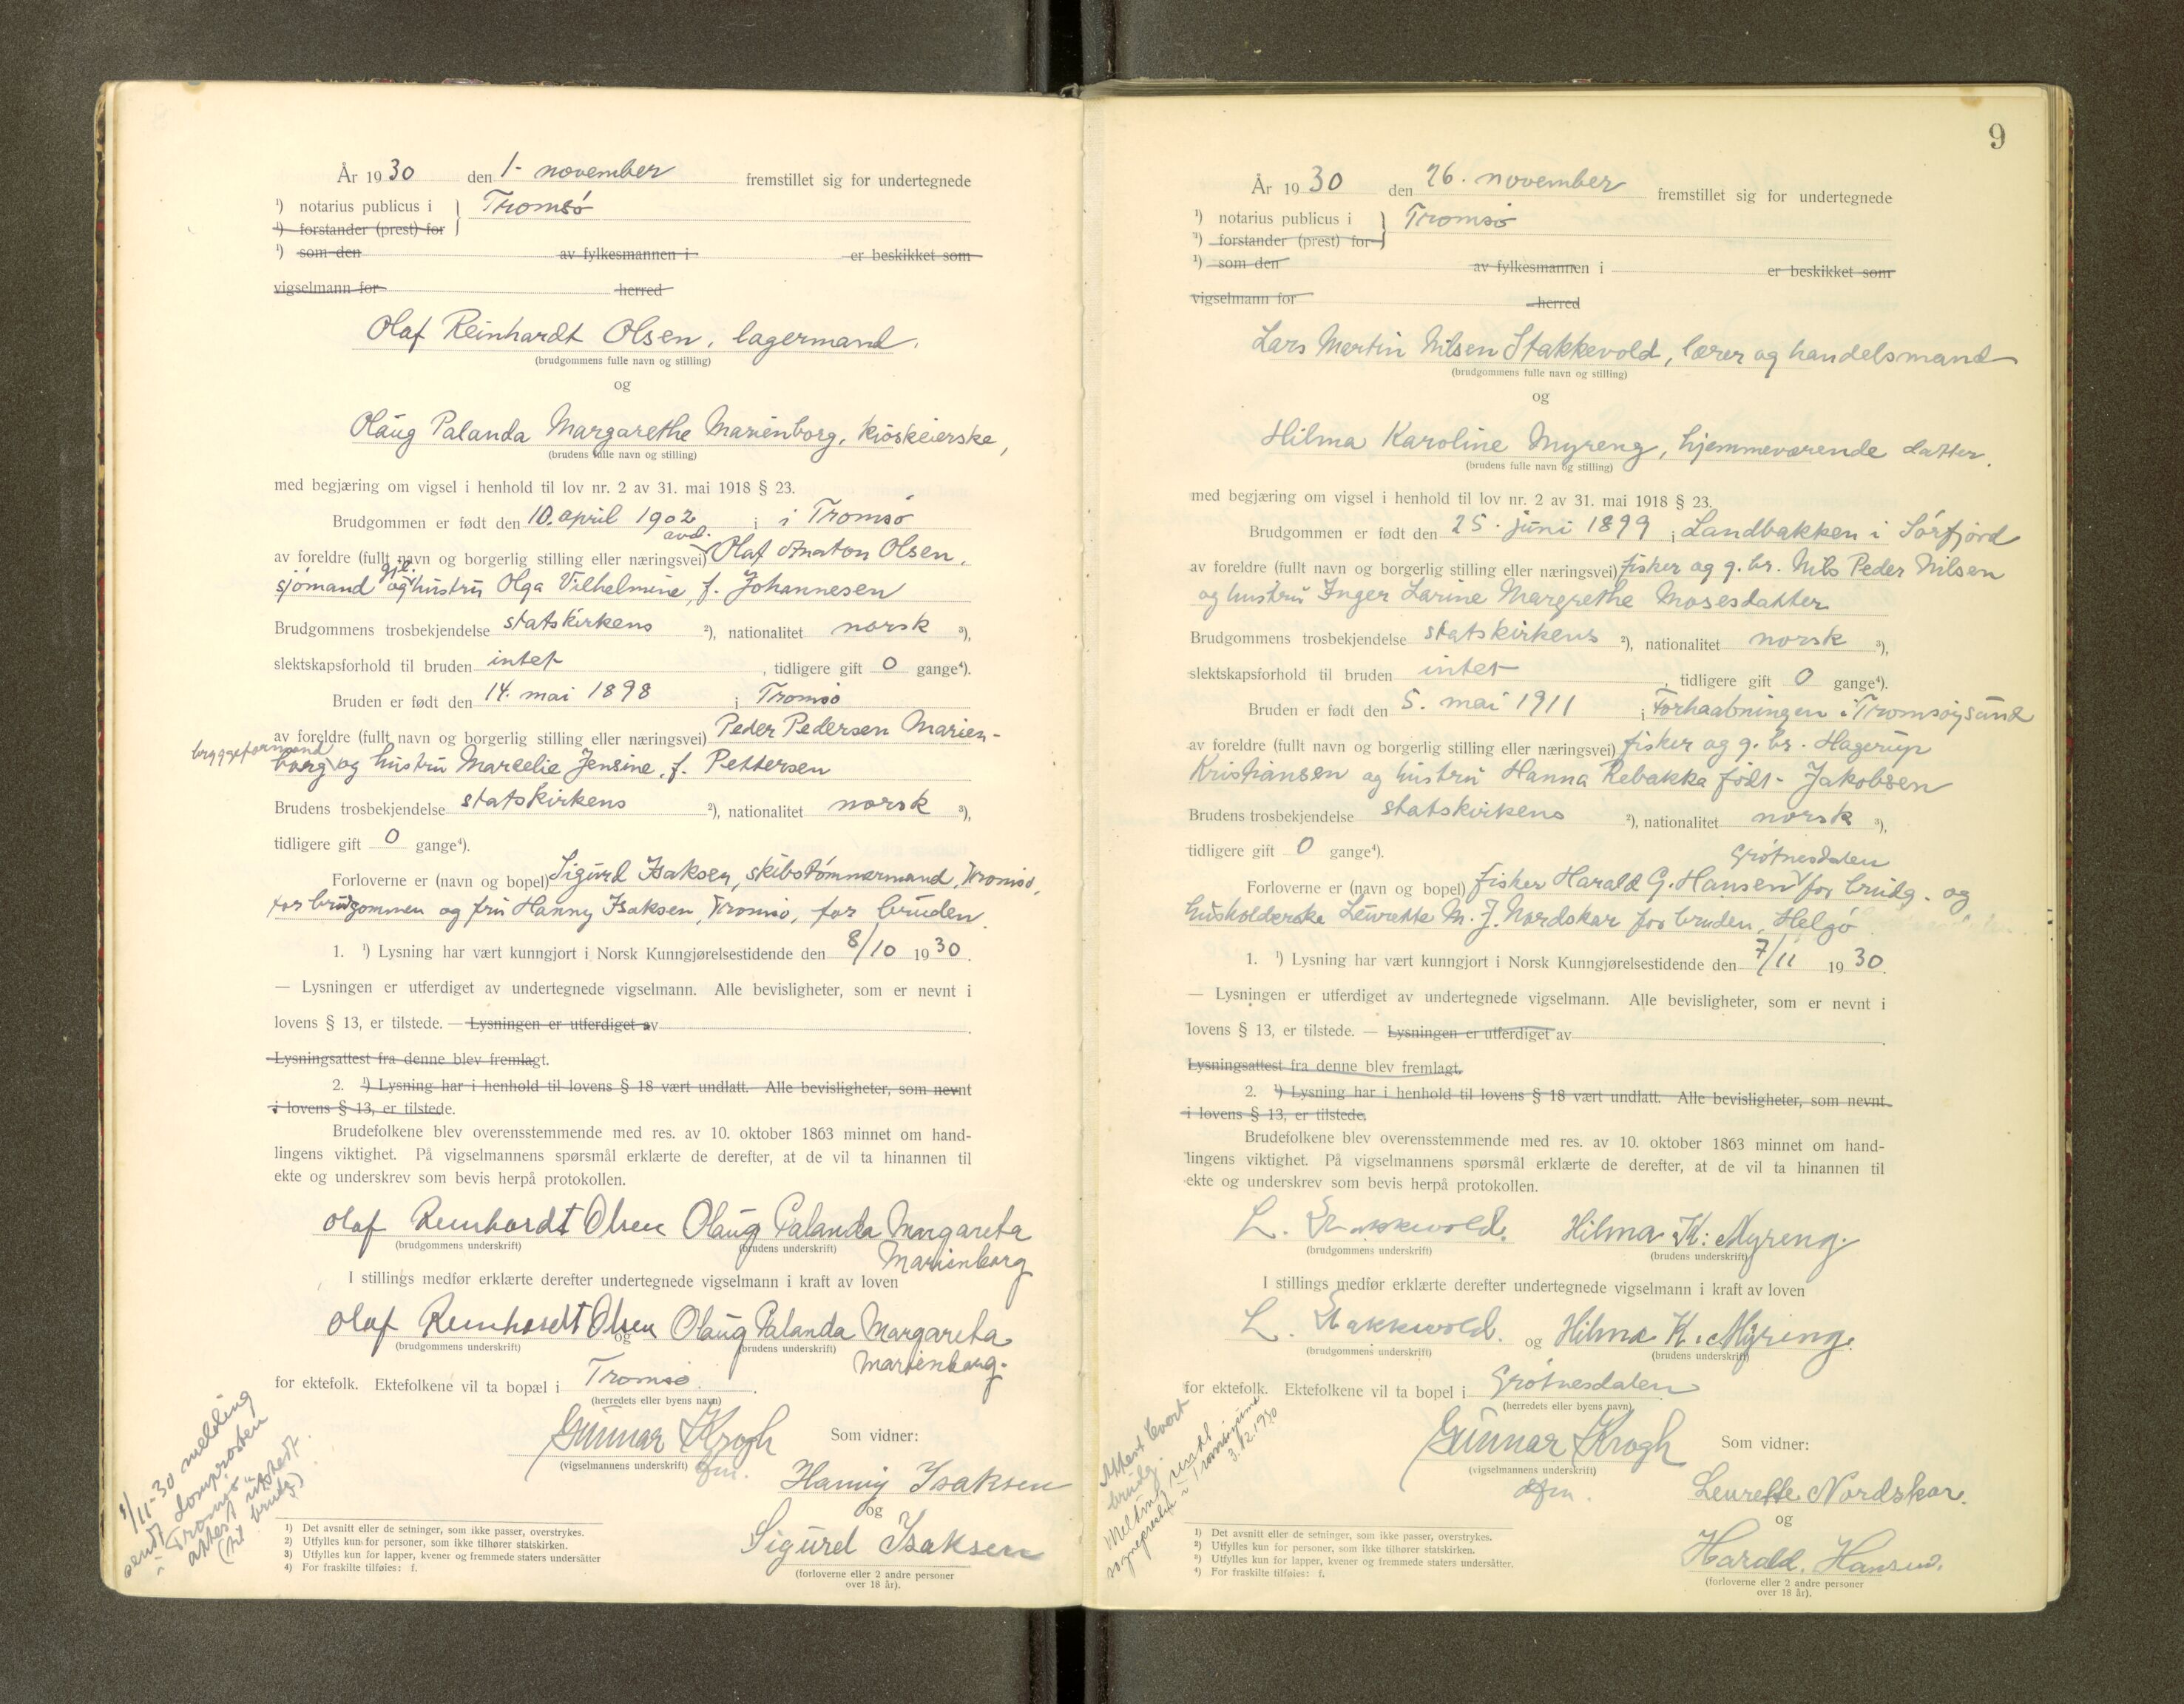 År 1930 den 1- november fremstillet sig for undertegnede
¹) notarius publicus i } Tromsö
¹) forstander (prest) for
¹) som den av fylkesmannen i er beskikket som
vigselmann for herred
Olaf Reinhardt Olsen, lagermand.
(brudgommens fulle navn og stilling)
og
Olaug Palanda Margarethe Marienborg, kioskeierske,
(brudens fulle navn og stilling)
med begjæring om vigsel i henhold til lov nr. 2 av 31. mai 1918 § 23.
Brudgommen er født den 10. april 1902 i i Tromsö
avd.
av foreldre (fullt navn og borgerlig stilling eller næringsvei) Olaf Anaton Olsen,
gjl.
sjömand og hustru Olga Vilhelmine, f. Johannesen
Brudgommens trosbekjendelse statskirkens ²), nationalitet norsk ³),
slektskapsforhold til bruden intet , tidligere gift 0 gange⁴).
Bruden er født den 14. mai 1898 i Tromsö
av foreldre (fullt navn og borgerlig stilling eller næringsvei) Peder Pedersen Marien-
bryggeformand
borg og hustru Marcelie Jensine, f. Pettersen
Brudens trosbekjendelse statskirkens ²), nationalitet norsk ³),
tidligere gift 0 gange⁴).
Forloverne er (navn og bopel) Sigurd Isaksen, skibstömmermand, Tromsö,
for brudgommen og fru Hanny Isaksen, Tromsö, for bruden.
1. ¹) Lysning har vært kunngjort i Norsk Kunngjørelsestidende den 8/10 1930.
— Lysningen er utferdiget av undertegnede vigselmann. Alle bevisligheter, som er nevnt i
lovens § 13, er tilstede. — Lysningen er utferdiget av .
Lysningsattest fra denne blev fremlagt.
2. ¹) Lysning har i henhold til lovens § 18 vært undlatt. Alle bevisligheter, som nevnt
i lovens § 13, er tilstede.
Brudefolkene blev overensstemmende med res. av 10. oktober 1863 minnet om hand-
lingens viktighet. På vigselmannens spørsmål erklærte de derefter, at de vil ta hinannen til
ekte og underskrev som bevis herpå protokollen.
Olaf Reinhardt Olsen Olaug Palanda Margareta
(brudgommens underskrift) (brudens underskrift)
Marienborg
I stillings medfør erklærte derefter undertegnede vigselmann i kraft av loven
Olaf Reinhardt Olsen og Olaug Palanda Margareta
(brudgommens underskrift) (brudens underskrift)
Marienborg.
for ektefolk. Ektefolkene vil ta bopæl i Tromsö.
(herredets eller byens navn)
Gunnar Krogh Som vidner:
(vigselmannens underskrift)
Hanny Isaksen
og
Sigurd Isaksen
(forloverne eller 2 andre personer
over 18 år).
/11-30 melding
sendt domprosten
i Tromsö
attest utstedt
(til brudg)
¹) Det avsnitt eller de setninger, som ikke passer, overstrykes.
²) Utfylles kun for personer, som ikke tilhører statskirken.
³) Utfylles kun for lapper, kvener og fremmede staters undersåtter
⁴) For fraskilte tilføies: f.
9
År 1930 den 26. november fremstillet sig for undertegnede
¹) notarius publicus i } Tromsö
¹) forstander (prest) for
¹) som den av fylkesmannen i er beskikket som
vigselmann for herred
Lars Martin Nilsen Stakkevold, lærer og handelsmand
(brudgommens fulle navn og stilling)
og
Hilma Karoline Myreng, hjemmeværende datter.
(brudens fulle navn og stilling)
med begjæring om vigsel i henhold til lov nr. 2 av 31. mai 1918 § 23.
Brudgommen er født den 25. juni 1899 i Landbakken i Sörfjord
av foreldre (fullt navn og borgerlig stilling eller næringsvei) fisker og g. br. Nils Peder Nilsen
og hustru Inger Larine Margrethe Mosesdatter
Brudgommens trosbekjendelse statskirkens ²), nationalitet norsk ³),
slektskapsforhold til bruden intet , tidligere gift 0 gange⁴).
Bruden er født den 5. mai 1911 i Forhaabningen i Tromsöysund
av foreldre (fullt navn og borgerlig stilling eller næringsvei) fisker og g. br. Hagerup
Kristiansen og hustru Hanna Rebakka født Jakobsen
Brudens trosbekjendelse statskirkens ²), nationalitet norsk ³),
tidligere gift 0 gange⁴).
Grötnesdalen
Forloverne er (navn og bopel) fisker Harald G. Hansen for brudg. og
husholderske Leurette M. J. Nordskar for bruden, Helgö
1. ¹) Lysning har vært kunngjort i Norsk Kunngjørelsestidende den 7/11 1930.
— Lysningen er utferdiget av undertegnede vigselmann. Alle bevisligheter, som er nevnt i
lovens § 13, er tilstede. — Lysningen er utferdiget av .
Lysningsattest fra denne blev fremlagt.
2. ¹) Lysning har i henhold til lovens § 18 vært undlatt. Alle bevisligheter, som nevnt
i lovens § 13, er tilstede.
Brudefolkene blev overensstemmende med res. av 10. oktober 1863 minnet om hand-
lingens viktighet. På vigselmannens spørsmål erklærte de derefter, at de vil ta hinannen til
ekte og underskrev som bevis herpå protokollen.
L. Stakkwold. Hilma K. Myreng.
(brudgommens underskrift) (brudens underskrift)
I stillings medfør erklærte derefter undertegnede vigselmann i kraft av loven
L. Stakkwold. og Hilma K. Myring.
(brudgommens underskrift) (brudens underskrift)
for ektefolk. Ektefolkene vil ta bopel i Grötnesdalen
(herredets eller byens navn)
Gunnar Krogh Som vidner:
(vigselmannens underskrift)
Leurette Nordskar.
og
Harald. Hansen.
(forloverne eller 2 andre personer
over 18 år).
Attest levert
brudg.
Melding sendt
sognepresten i Tromsöysund
3.12.1930
¹) Det avsnitt eller de setninger, som ikke passer, overstrykes.
²) Utfylles kun for personer, som ikke tilhører statskirken.
³) Utfylles kun for lapper, kvener og fremmede staters undersåtter.
⁴) For fraskilte tilføies: f.